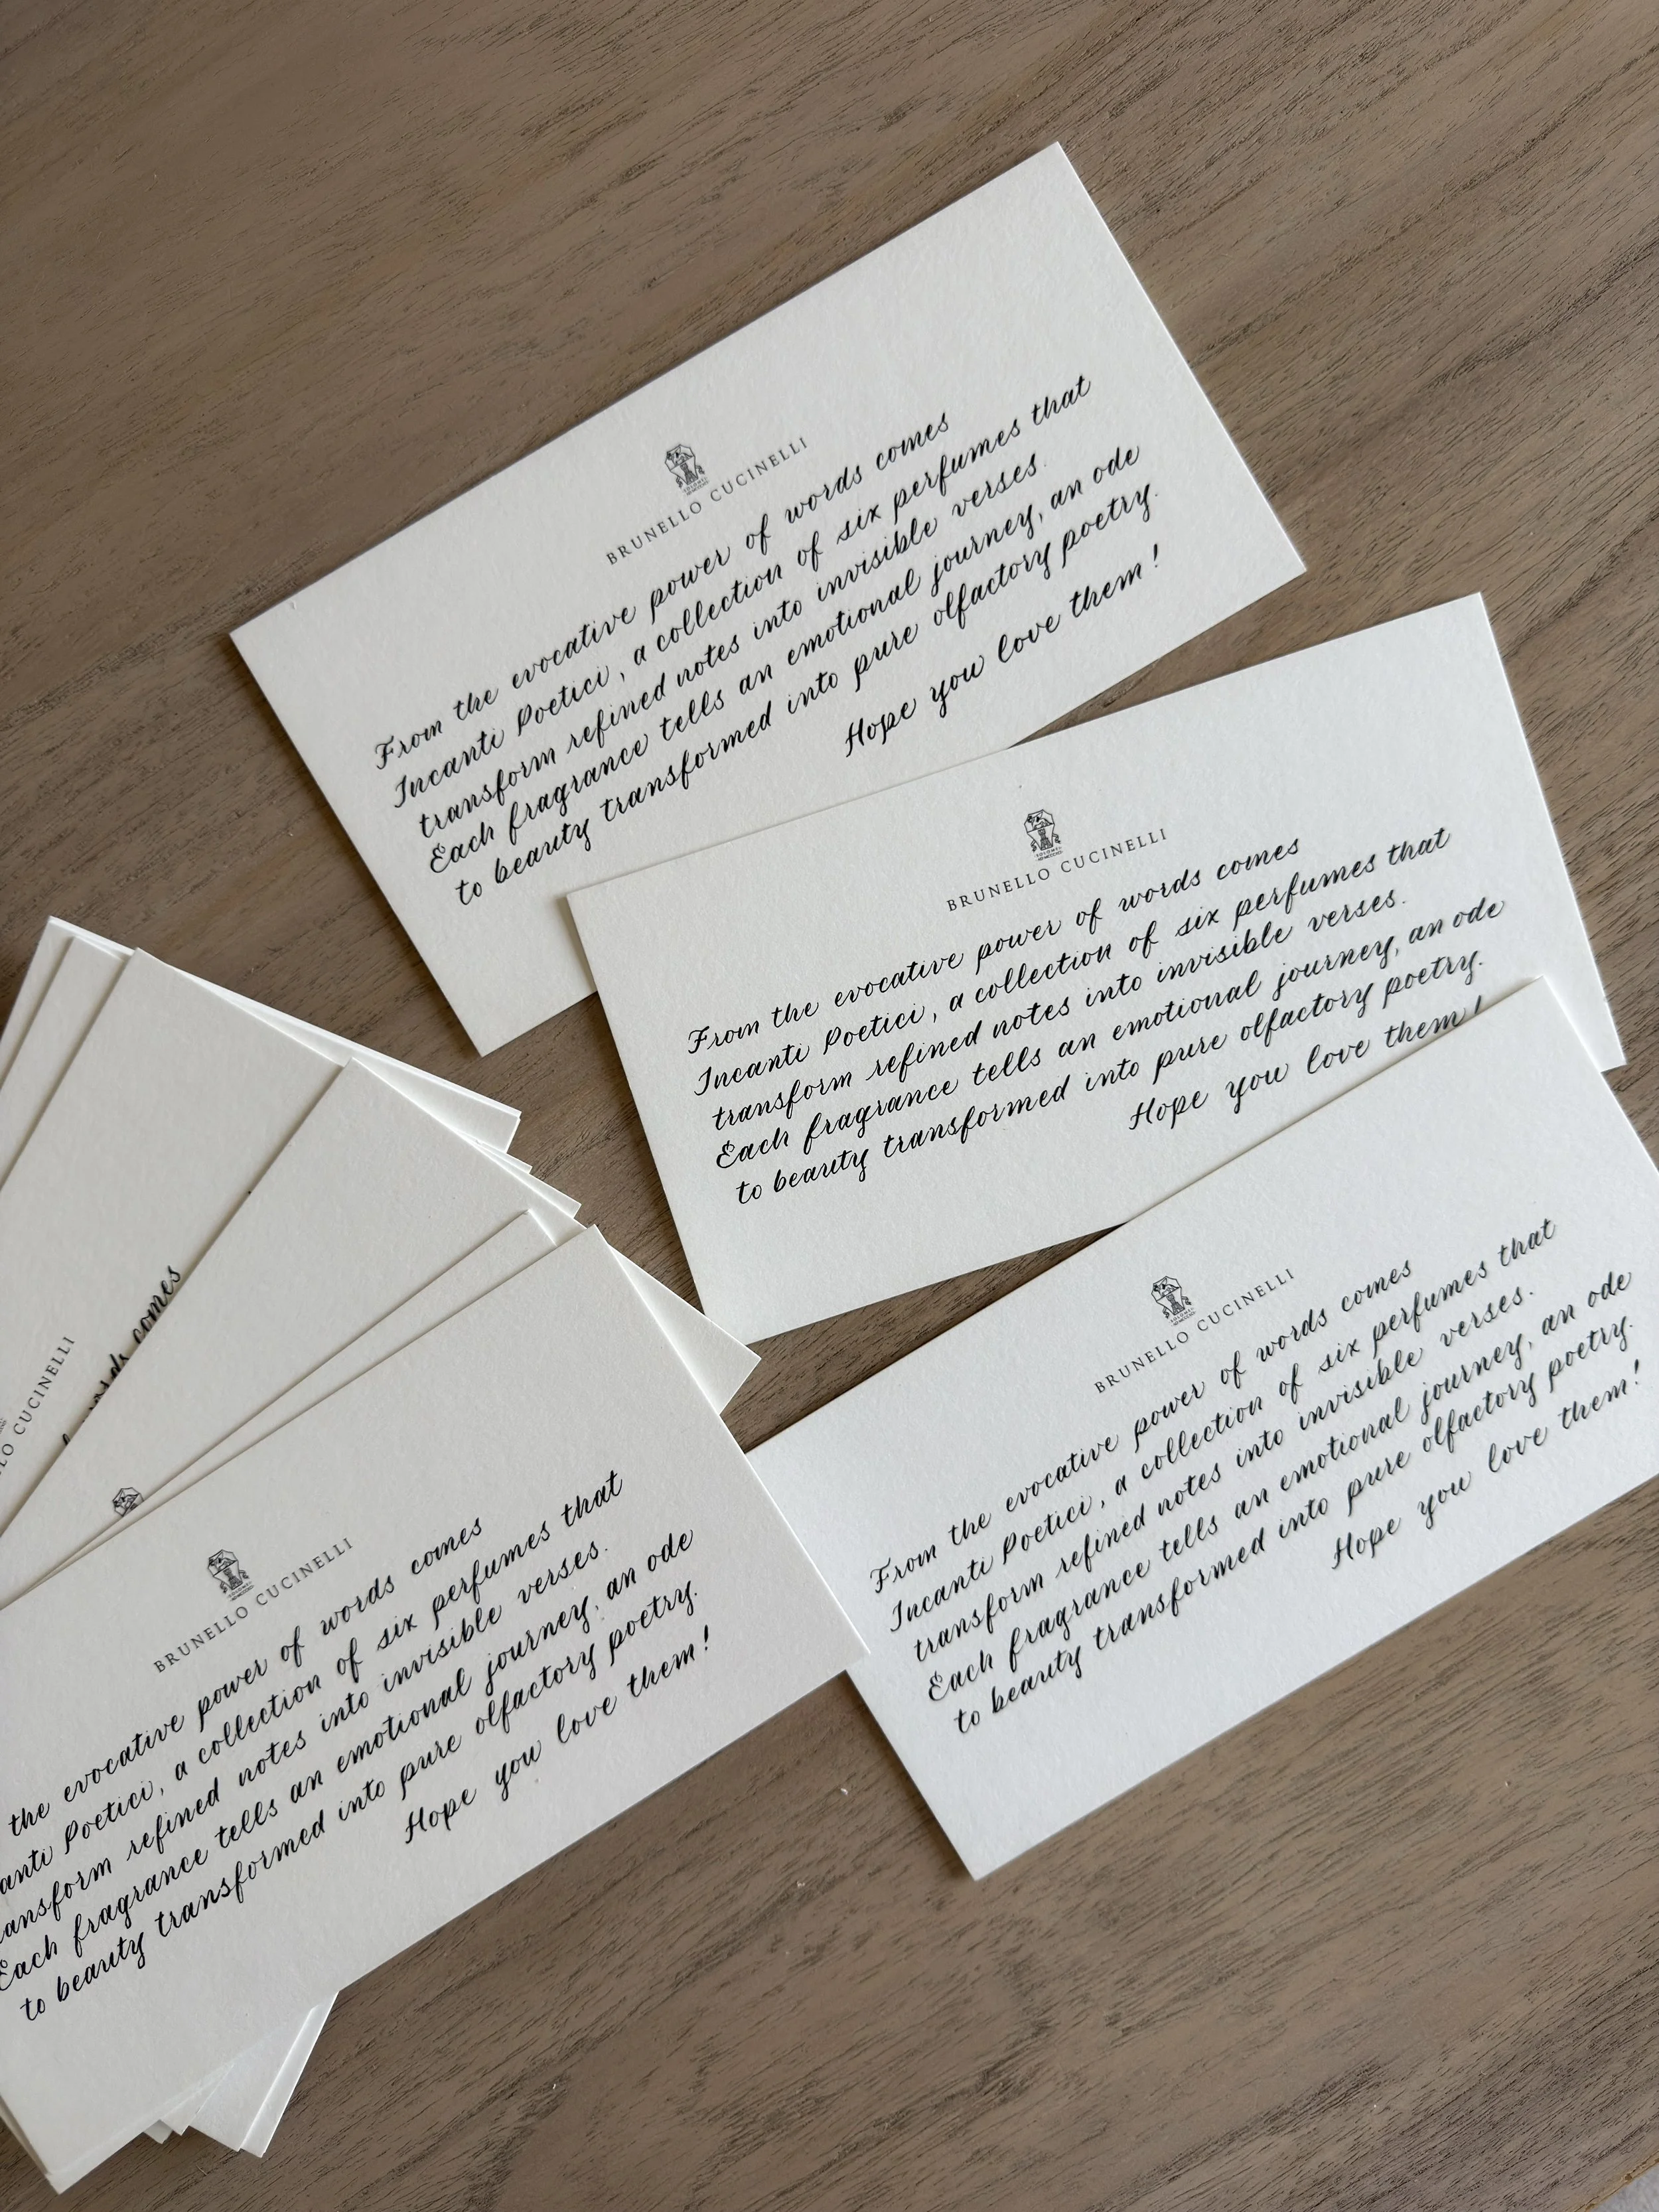 BRUNELLO CUCINELLI
From the evocative power of words comes
Incanti Poetici, a collection of six perfumes that
transform refined notes into invisible verses.
Each fragrance tells an emotional journey, an ode
to beauty transformed into pure olfactory poetry.
Hope you love them!
BRUNELLO CUCINELLI
From the evocative power of words comes
Incanti Poetici, a collection of six perfumes that
transform refined notes into invisible verses.
Each fragrance tells an emotional journey, an ode
to beauty transformed into pure olfactory poetry.
Hope you love them!
BRUNELLO CUCINELLI
From the evocative power of words comes
Incanti Poetici, a collection of six perfumes that
transform refined notes into invisible verses.
Each fragrance tells an emotional journey, an ode
to beauty transformed into pure olfactory poetry.
Hope you love them!
CUCINELLI
words comes
BRUNELLO CUCINELLI
the evocative power of words comes
anti Poetici, a collection of six perfumes that
ansform refined notes into invisible verses.
Each fragrance tells an emotional journey, an ode
to beauty transformed into pure olfactory poetry.
Hope you love them!